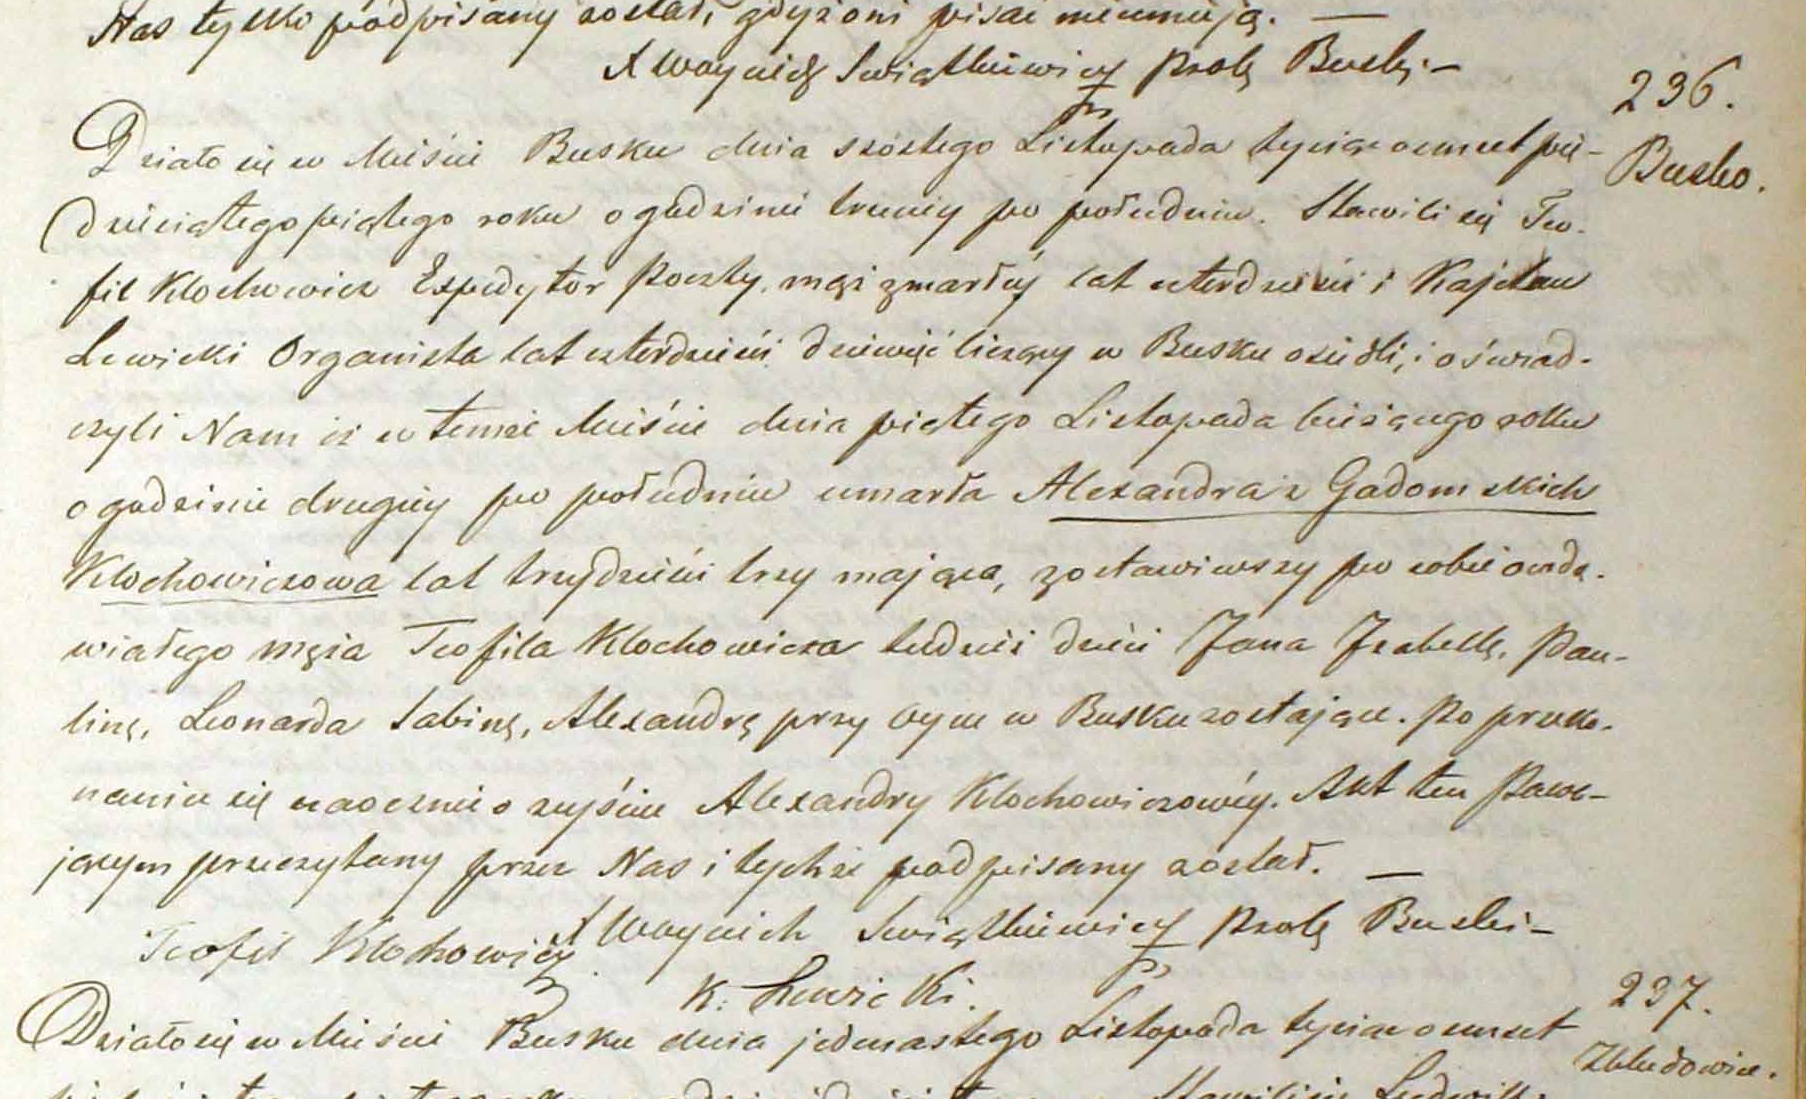 Nas tylko podpisany został, gdyż oni pisać nieumieją. —
X Woyciech Świątkiewicz Prob. Buski. —
236.
Busko.
Działo się w Mieście Busku dnia szóstego Listopada tysiąc osmset pię-
dziesiątego piątego roku o godzinie trzeciey po południu. Stawili się Teo-
fil Klochowicz Expedytor Poczty, mąż zmarłéy lat czterdzieści i Kajetan
Lewicki Organista lat czterdzieści dziewięć liczący w Busku osiedli, i oświad-
czyli Nam iż w temże Mieście dnia piątego Listopada bieżącego roku
o godzinie drugiéy po południu umarła Alexandra z Gadomskich
Klochowiczowa lat trzydzieści trzy mająca, zostawiwszy po sobie owdo-
wiałego męża Teofila Klochowicza tudzież dzieci Jana Izabellę, Pau-
linę, Leonarda Sabinę, Alexandrę przy Oycu w Busku zostające. Po przeko-
naniu się naocznie o zejściu Alexandry Klochowiczowéy. Akt ten Stawa-
jącym przeczytany przez Nas i tychże podpisany został. —
X Woyciech Świątkiewicz Prob. Buski —
Teofil Klochowicz
K. Lewicki.
237.
Zbludowice.
Działo się w Mieście Busku dnia jedenastego Listopada tysiąc osmset
Stawili się